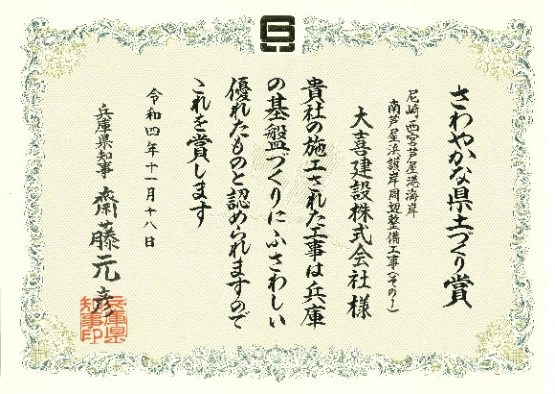 さわやかな県土づくり賞
尼崎西宮芦屋港海岸
南芦屋浜護岸周辺整備工事(その1)
大喜建設株式会社 様
貴社の施工された工事は兵庫
の基盤づくりにふさわしい
優れたものと認められますので
これを賞します
令和四年十一月十八日
兵庫県知事 齋藤元彦
兵庫県
知事印